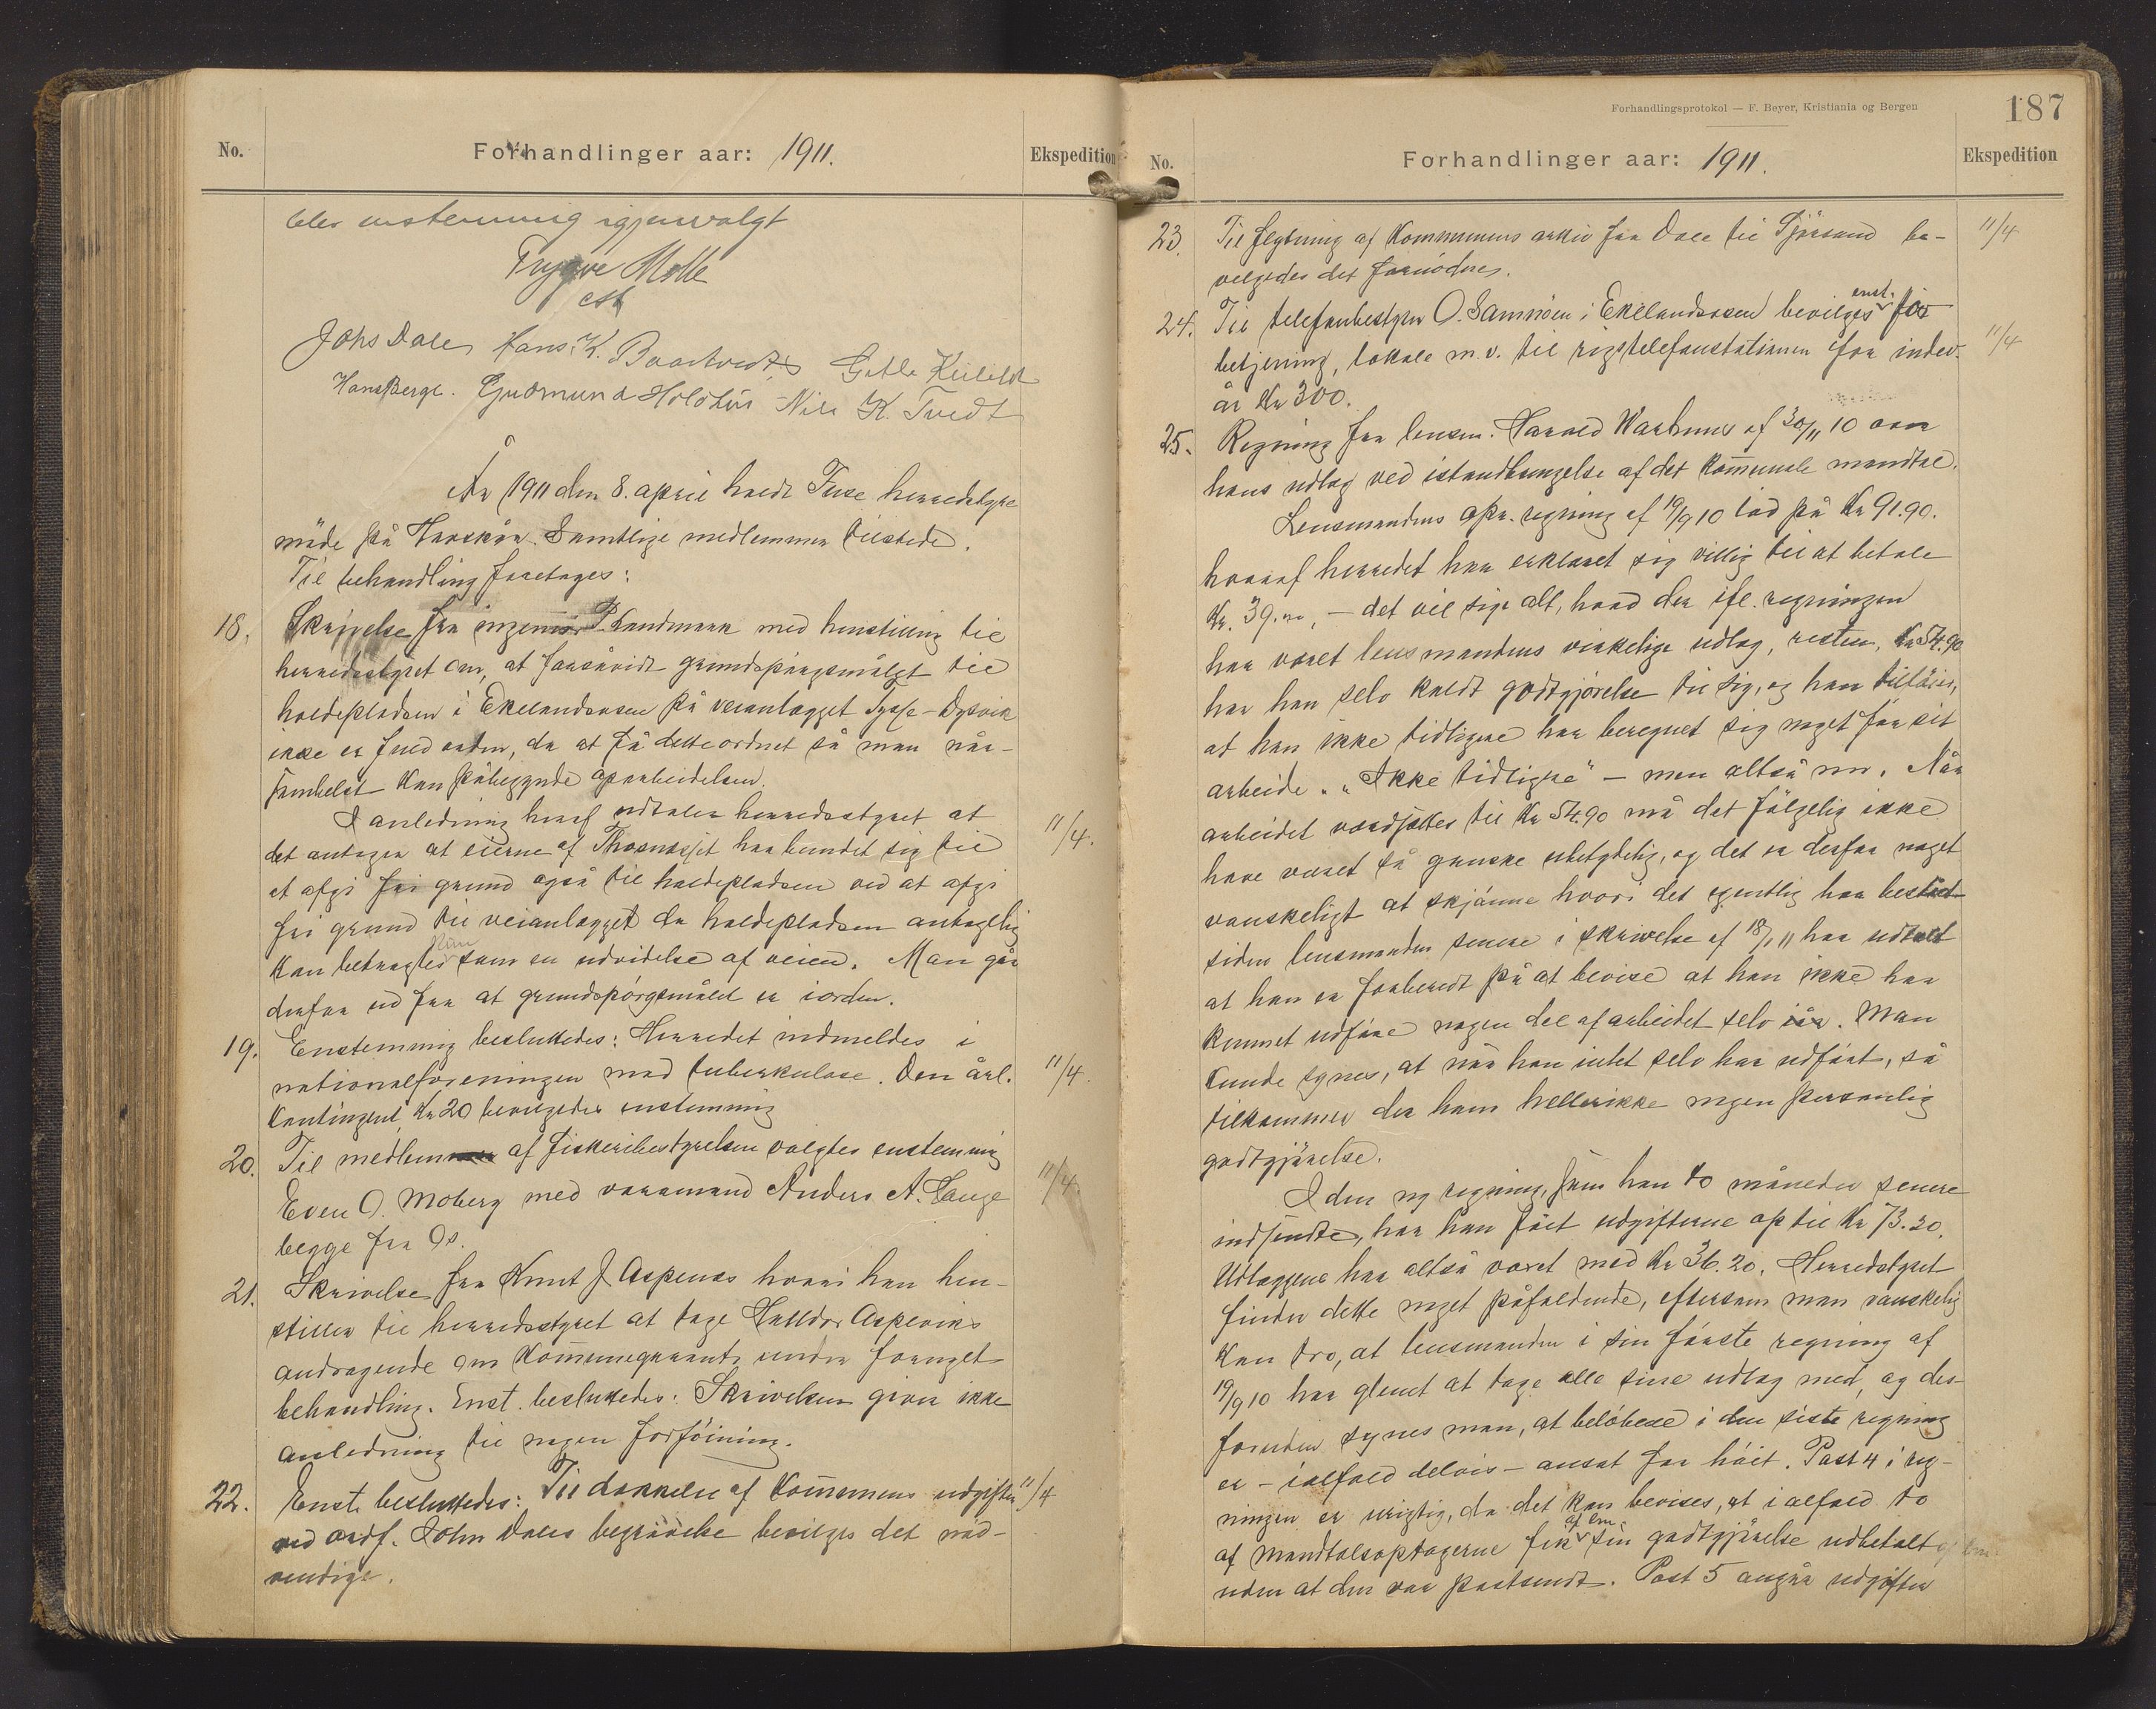 No.
Forhandlinger aar: 1911.
Ekspedition
blev enstemmig igjenvalgt
Trygve Molle
Johs Dale Hans. K.
Hans Berge. Gudmund Holdhus Nils K. Tvedt
År 1911 den 8. april holdt Fuse herredstyre
möde på Havskår. Samtlige medlemmer tilstede.
Til behandling foretages:
18. Skrivelse fra ingeniör P. Landmark med henstilling til
herredsstyret om, at forsåvidt grundspörgsmålet til
holdepladsen i Ekelandsosen på veianlægget Tysse-Dysvik
ikke er fuld orden, da at få dette ordnet så man når-
somhelst kan påbegynde oparbeidelsen.
I anledning heraf udtaler herredsstyret at
11/4.
det antages at eierne af har bundet sig til
at afgi fri grund også til holdepladsen ved at afgi
fri grund til veianlægget da holdepladsen antagelig
kan betragtes kun som en udvidelse af veien. Man går
derfor ud fra at grundspörgsmålet er iorden.
19. Enstemmig besluttedes: Herredet indmeldes i
nationalforeningen mod tuberkulose. Den årl.
11/4.
kontingent, Kr 20 bevilgedes enstemmig
20. Til medlem af fiskeribestyrelsen valgtes enstemmig
Even O. Moberg med varamand Anders A. Lauge
11/4
begge fra Os.
21. Skrivelse fra Knut J. Aspenes hvori han hen-
stiller til herredsstyret at tage Halldor Aspeviks
andragende om Kommunegaranti under fornyet
behandling. Enst. besluttedes: Skrivelsen giver ikke
anledning til nogen forföining.
22. Enst. besluttedes: Til dækkelse af Kommunens udgifter
11/4
ved ordf. John Dales begravelse bevilges det nöd-
vendige.
Forhandlingsprotokol — F. Beyer, Kristiania og Bergen
187
No.
Forhandlinger aar: 1911.
Ekspedition
23. Til flytning af Kommunens arkiv fra Dale til Gjörsand be-
11/4
velgedes det fornödne.
24. Til telefonbestyrer O. Samnöen i Ekelandsosen bevilges enst. for
betjening, lokale m.v. til rigstelefonstationen for indev.
11/4
år Kr 300.
25. Regning fra lensm. Harald Warhuus af 30/11 10 over
hans udlæg ved istandbringelse af det kommunale mandtal.
Lensmandens opr. regning af 19/9 10 lød på Kr 91.90.
hvoraf herredet har erklæret sig villig til at betale
Kr. 39.00, — det vil sige alt, hvad der ifl. regningen
har været lensmandens virkelige udlæg, resten, Kr 54.90
har han selv kaldt godtgjörelse til sig, og han tilföier,
at han ikke tidligere har beregnet sig noget for sit
arbeide. „Ikke tidligere" — men altså nu. Når
arbeidet værdsættes til Kr 54.90 må det fölgelig ikke
have været så ganske ubetydelig, og det er derfor noget
vanskeligt at skjönne hvori det egentlig har bestået
siden lensmanden senere i skrivelse af 18/1 11 har udtalt
at han er forberedt på at bevise at han ikke har
kunnet udföre nogen del af arbeidet selv iår. Man
kunde synes, at når han intet selv har udfört, så
tilkommer der ham hellerikke nogen personlig
godtgjörelse.
I den ny regning, som han to måneder senere
indsendte, har han fået udgifterne op til Kr 73.20.
Udlæggene har altså været med Kr 36.20. Herredstyret
finder dette noget påfaldende, eftersom man vanskelig
kan tro, at lensmanden i sin förste regning af
19/9 10 har glemt at tage alle sine udlæg med, og des-
foruden synes man, at belöbene i den siste regning
er — ialfald delvis — ansat for höit. Post 4 i reg-
ningen er urigtig, da det kan bevises, at i alfald to
af Mandtalsoptagerne fik af lm. sin godtgjörelse udbetalt
uden at den var postsendt. Post 5 angår udgifter